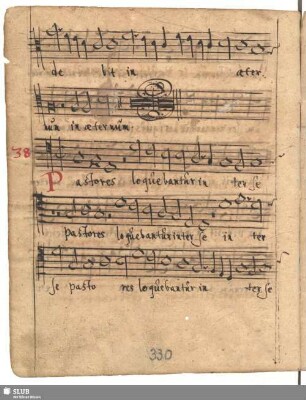 de bit in æter
num in æternum.
38
Pastores loquebantur in ter se
pastores loquebantur inter se in ter
se pasto res loquebantur in ter se
330
SLUB